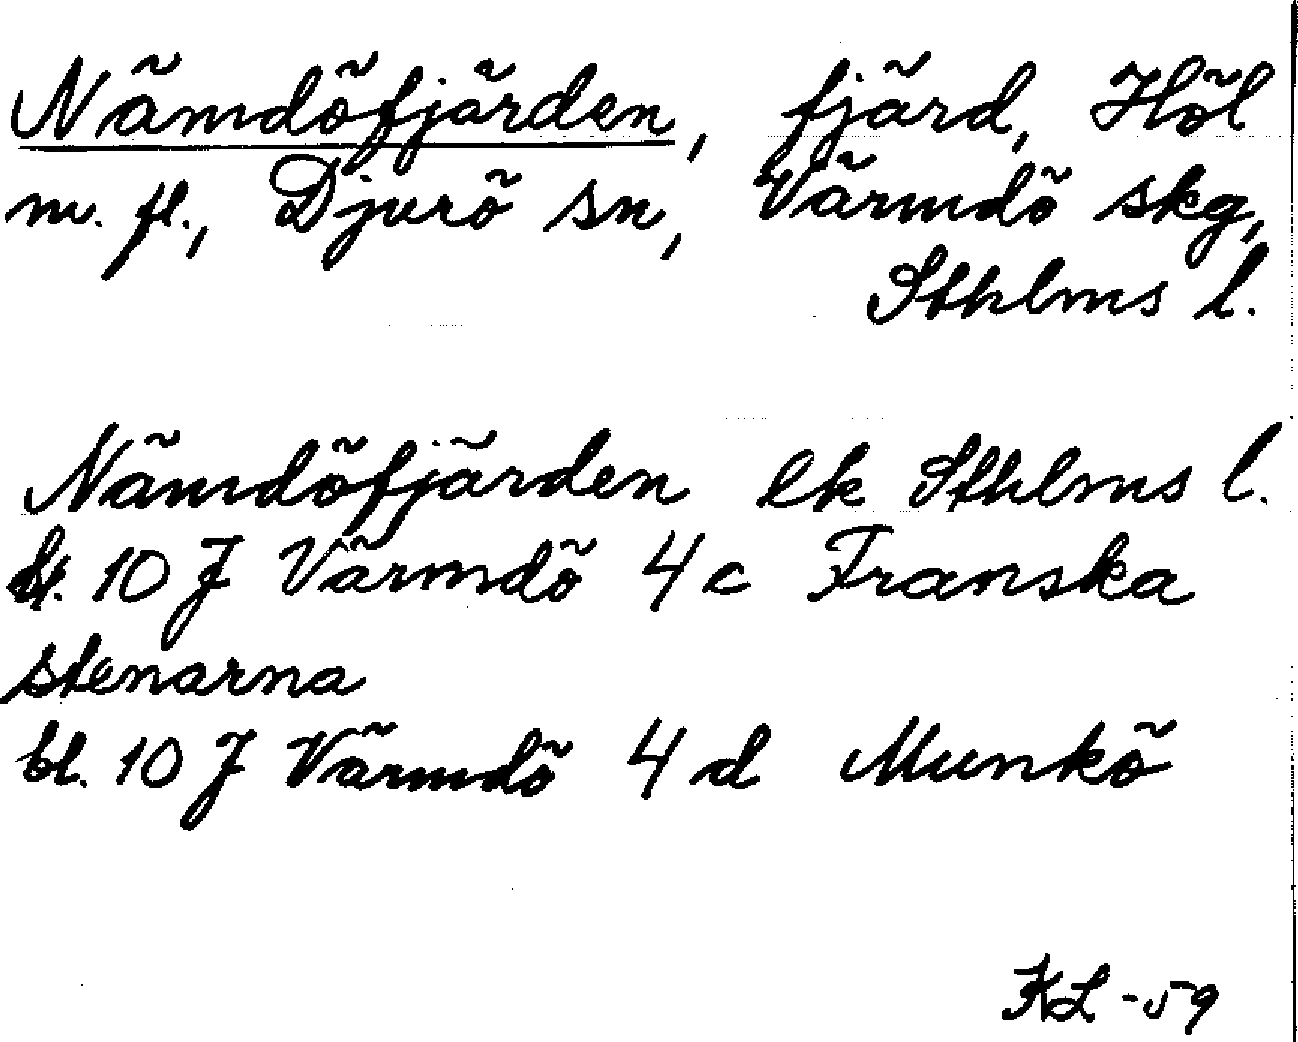 Nämdöfjärden, fjärd, Höl
m. fl., Djurö sn, Värmdö skg,
Sthlms l.
Nämdöfjärden ek Sthlms l.
bl. 10 J Värmdö 4 c Franska
stenarna
bl. 10 J Värmdö 4 d Munkö
KL -59